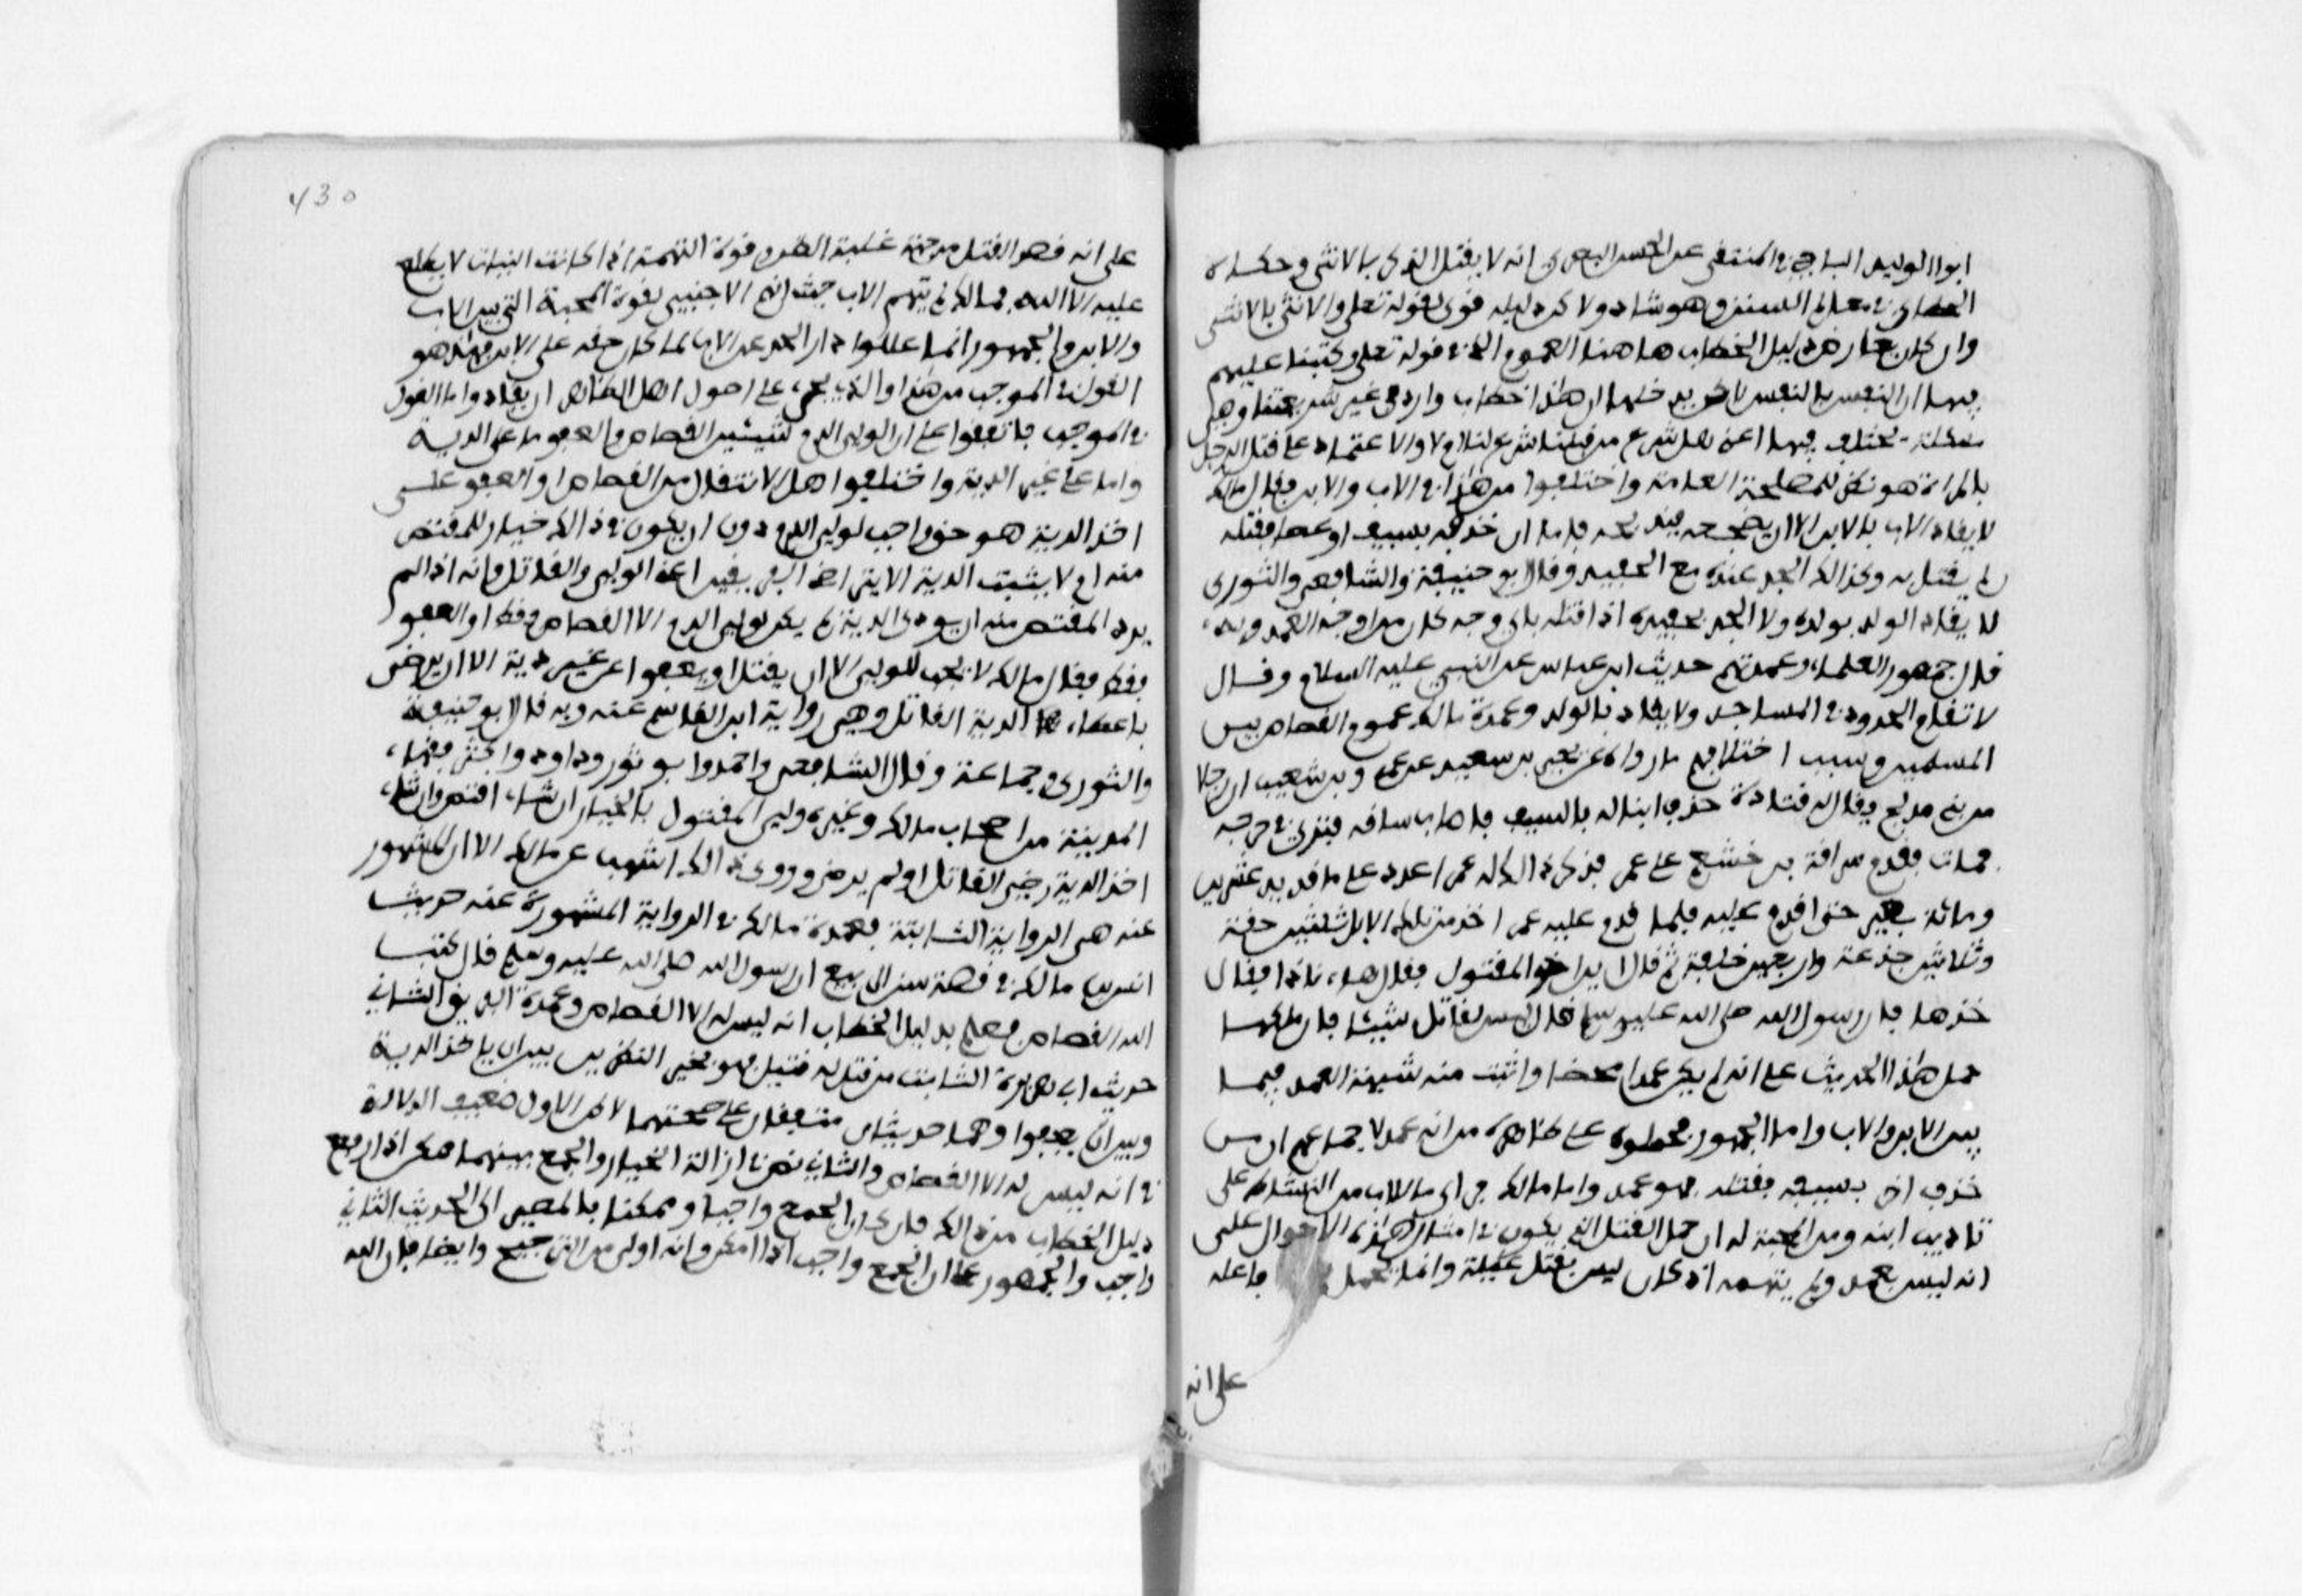 ابوا الوليد الباجي في المنتقى عن الحسن البصري انه لا يقتل الذكر بالانثى وحكاه
الخطابي في معالم السنن وهو شاذ ولاكن دليله قوي لقوله تعلى والانثى بالانثى
وان كان يعارض دليل الخطاب هاهنا العموم الذي في قوله تعلى وكتبنا عليهم
فيها ان النفس بالنفس لاكن يدخلها ان هذا خطاب وارد في غير شريعتنا وهي
مسئلة مختلف فيها اعني هل شرع من قبلنا شرع لنا ام لا والاعتماد على قتل الرجل
بالمراة هو نظر للمصلحة العامة واختلفوا من هذا في الاب والابن فقال مالك
لا يقاد الاب بالابن الا ان يضجعه فيذبحه فاما ان حذفه بسيف او عصا فقتله
لم يقتل به وكذالك الجد عنده مع الحفيد وقال ابو حنيفة والشافعي والثوري
لا يقاد الوالد بولده ولا الجد بحفيده اذا قتله باي وجه كان من اوجه العمد وبه
قال جمهور العلماء وعمدتهم حديث ابن عباس عن النبي عليه السلام وقال
لا تقام الحدود في المساجد ولا يقاد بالولد وعمدة مالك عموم القصاص بين
المسلمين وسبب اختلافهم ما رواه عن يحيى بن سعيد عن عمرو بن شعيب ان رجلا
من بني مدلج يقال له قتادة حذف ابنا له بالسيف فاصاب ساقه فنزي في جرحه
فمات فقدم سراقة بن خشعم على عمر فذكر ذالك له عمر اعدد على ما قديد عشرين
ومائة بعير حتى اقدم عليه فلما قدم عليه عمر اخذ من تلك الابل ثلثين حقة
وثلاثين جذعة واربعين خلفة ثم قال اين اخو المقتول فقال هاء ناذا فقال
خذها فان رسول الله صلى الله عليه وسلم قال ليس لقاتل شيئا فان مالكا
حمل هذا الحديث على انه لم يكن عمدا محضا واثبت منه شبهة العمد فيما
بين الابن والاب واما الجمهور فحملوه على ظاهره من انه عمد لاجماعهم ان من
حذف اخر بسيف فقتله فهو عمد واما مالك فراى ما للاب من التسلط على
تاديب ابنه ومن المحبة له ان حمل القتل الذي يكون في امثال هذه الاحوال على
انه ليس بعمد ولم يتهمه اذ كان ليس بقتل غيلة وانما يحمل فاعله
على انه
430
على انه قصد القتل من جهة غلبة الظن وقوة التهمة اذ كانت النيات لا يطلع
عليها الا الله فمالك لم يتهم الاب حيث اتهم الاجنبي لقوة المحبة التي بين الاب
والابن والجمهور انما عللوا درا الحد عن الاب لمكان حقه على الابن فهذا هو
القول في الموجب من هذا والذي يجيء على اصول اهل الظاهر ان يقاد واما القول
في الموجب فاتفقوا على ان لولي الدم شيئين القصاص والعفو اما على الدية
واما على غير الدية واختلفوا هل الانتقال من القصاص او العفو على
اخذ الدية هو حق واجب لولي الدم دون ان يكون في ذالك خيار للمقتص
منه ام لا يثبت الدية الا بتراضي الفريقين اعني الولي والقاتل وانه اذا لم
يرد المقتص منه ان يودي الدية لم يكن لولي الدم الا القصاص فقط او العفو
فقط فقال مالك لا يجب للولي الا ان يقتل او يعفوا عن غير دية الا ان يرضى
باعطاء الدية القاتل وهي رواية ابن القاسم عنه وبه قال ابو حنيفة
والثوري وجماعة وقال الشافعي واحمد وابو ثور وداود واكثر فقهاء
المدينة من اصحاب مالك وغيره ولي المقتول بالخيار ان شاء اقتص وان شاء
اخذ الدية رضي القاتل او لم يرض وروى ذالك اشهب عن مالك الا ان المشهور
عنه هي الرواية الثابتة فعمدة مالك في الرواية المشهورة عنه حديث
انس بن مالك في قصة سن الربيع ان رسول الله صلى الله عليه وسلم قال كتب
الله القصاص فعلم بدليل الخطاب انه ليس له الا القصاص وعمدة الفريق الثاني
حديث ابي هريرة الثابت من قتل له قتيل فهو بخير النظرين بين ان ياخذ الدية
وبين ان يعفوا وهما حديثان متفقان على صحتهما لاكن الاول ضعيف الدلالة
في انه ليس له الا القصاص والثاني نص في ازالة الخيار والجمع بينهما ممكن اذا رفع
دليل الخطاب من ذالك فان كان الجمع واجبا وممكنا فالمصير الى الحديث الثاني
واجب والجمهور على ان الجمع واجب اذا امكن وانه اولى من الترجيح وايضا فان الله